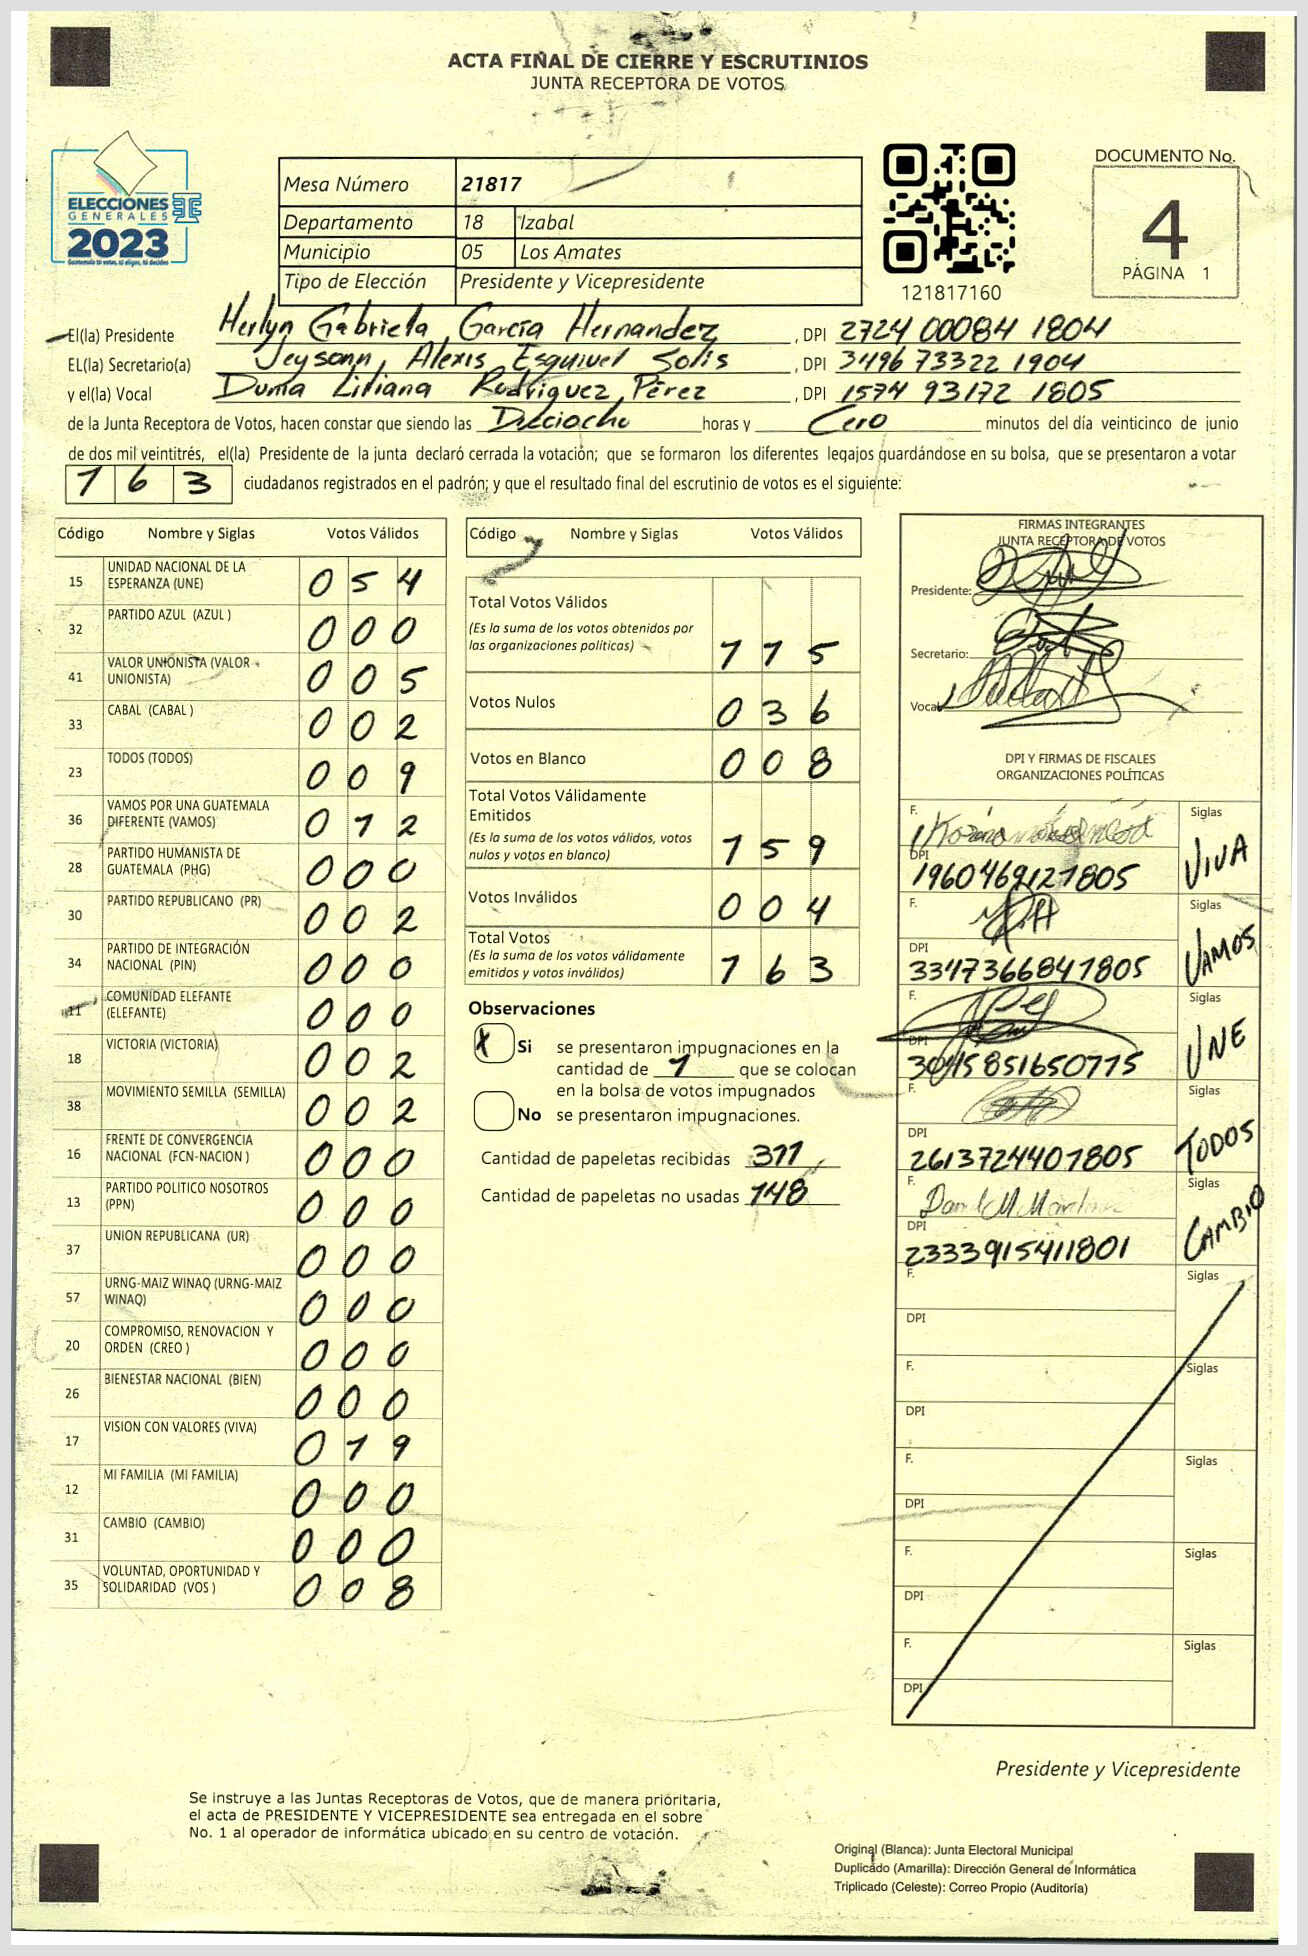 ACTA FINAL DE CIERRE Y ESCRUTINIOS
JUNTA RECEPTORA DE VOTOS
ELECCIONES
GENERALES
2023
Guatemala tú votas, tú eliges, tú decides
Mesa Número 21817
Departamento 18 Izabal
Municipio 05 Los Amates
Tipo de Elección Presidente y Vicepresidente
121817160
DOCUMENTO No.
4
PÁGINA 1
El(la) Presidente Herlyn Gabriela García Hernandez, DPI 2724 00084 1804
EL(la) Secretario(a) Jeysonn Alexis Esquivel Solis, DPI 3496 73322 1904
y el(la) Vocal Dunia Liliana Rodriguez Pérez, DPI 1574 93172 1805
de la Junta Receptora de Votos, hacen constar que siendo las Dieciocho horas y Cero minutos del día veinticinco de junio
de dos mil veintitrés, el(la) Presidente de la junta declaró cerrada la votación; que se formaron los diferentes legajos guardándose en su bolsa, que se presentaron a votar
163 ciudadanos registrados en el padrón; y que el resultado final del escrutinio de votos es el siguiente:
Código Nombre y Siglas Votos Válidos
15 UNIDAD NACIONAL DE LA ESPERANZA (UNE) 054
32 PARTIDO AZUL (AZUL ) 000
41 VALOR UNIONISTA (VALOR - UNIONISTA) 005
33 CABAL (CABAL ) 002
23 TODOS (TODOS) 009
36 VAMOS POR UNA GUATEMALA DIFERENTE (VAMOS) 012
28 PARTIDO HUMANISTA DE GUATEMALA (PHG) 000
30 PARTIDO REPUBLICANO (PR) 002
34 PARTIDO DE INTEGRACIÓN NACIONAL (PIN) 000
11 COMUNIDAD ELEFANTE (ELEFANTE) 000
18 VICTORIA (VICTORIA) 002
38 MOVIMIENTO SEMILLA (SEMILLA) 002
16 FRENTE DE CONVERGENCIA NACIONAL (FCN-NACION ) 000
13 PARTIDO POLITICO NOSOTROS (PPN) 000
37 UNION REPUBLICANA (UR) 000
57 URNG-MAIZ WINAQ (URNG-MAIZ WINAQ) 000
20 COMPROMISO, RENOVACION Y ORDEN (CREO ) 000
26 BIENESTAR NACIONAL (BIEN) 000
17 VISION CON VALORES (VIVA) 019
12 MI FAMILIA (MI FAMILIA) 000
31 CAMBIO (CAMBIO) 000
35 VOLUNTAD, OPORTUNIDAD Y SOLIDARIDAD (VOS ) 008
Código Nombre y Siglas Votos Válidos
Total Votos Válidos
(Es la suma de los votos obtenidos por
las organizaciones políticas) 115
Votos Nulos 036
Votos en Blanco 008
Total Votos Válidamente
Emitidos
(Es la suma de los votos válidos, votos
nulos y votos en blanco) 159
Votos Inválidos 004
Total Votos
(Es la suma de los votos válidamente
emitidos y votos inválidos) 163
Observaciones
X Si se presentaron impugnaciones en la
cantidad de 1 que se colocan
en la bolsa de votos impugnados
No se presentaron impugnaciones.
Cantidad de papeletas recibidas 311
Cantidad de papeletas no usadas 148
FIRMAS INTEGRANTES
JUNTA RECEPTORA DE VOTOS
Presidente:
Secretario:
Vocal
DPI Y FIRMAS DE FISCALES
ORGANIZACIONES POLÍTICAS
F. Siglas
DPI 1960469121805 VIVA
F. Siglas
DPI 3347366841805 VAMOS
F. Siglas
DPI 3045851650775 UNE
F. Siglas
DPI 2613724401805 TODOS
F. Siglas
DPI 2333915411801 CAMBIO
F. Siglas
DPI
F. Siglas
DPI
F. Siglas
DPI
F. Siglas
DPI
F. Siglas
DPI
Presidente y Vicepresidente
Se instruye a las Juntas Receptoras de Votos, que de manera prioritaria,
el acta de PRESIDENTE Y VICEPRESIDENTE sea entregada en el sobre
No. 1 al operador de informática ubicado en su centro de votación.
Original (Blanca): Junta Electoral Municipal
Duplicado (Amarilla): Dirección General de Informática
Triplicado (Celeste): Correo Propio (Auditoría)